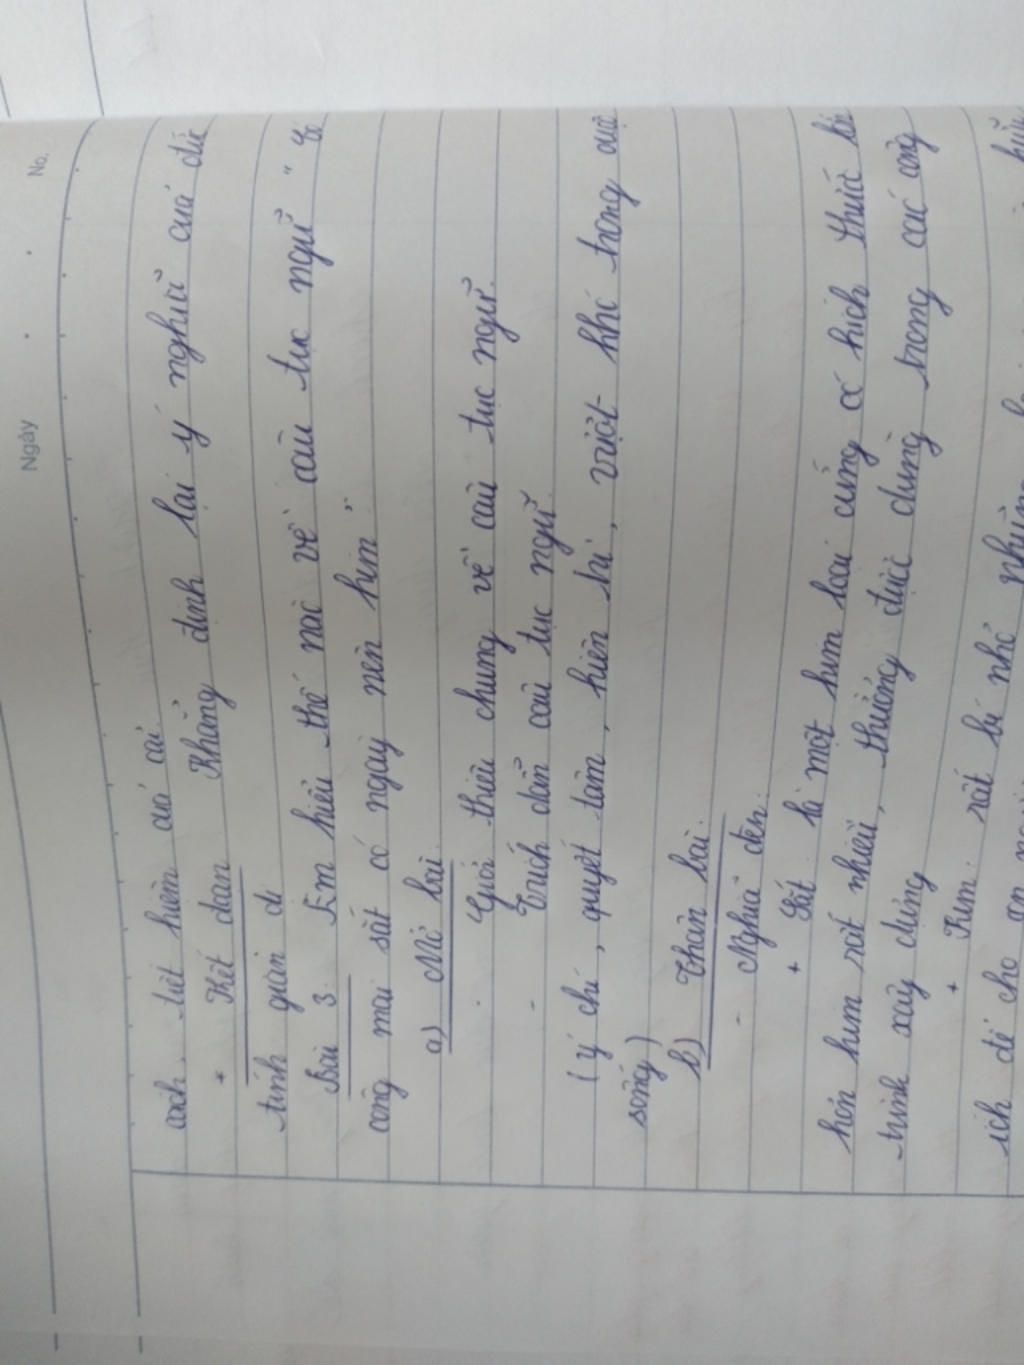 Ngày . . No.
cách, tiết kiệm của cải.
+ Kết đoạn Khẳng định lại ý nghĩa của đức
tính giản dị
Bài 3. Em hiểu thế nào về câu tục ngữ "
công mài sắt có ngày nên kim"
a) Mở bài:
- Giới thiệu chung về câu tục ngữ.
- Trích dẫn câu tục ngữ.
(ý chí, quyết tâm, kiên trì, vượt khó trong cuộc
sống)
b) Thân bài:
- Nghĩa đen:
+ Sắt: là một kim loại cứng có kích thước
hơn kim rất nhiều, thường được dùng trong các công
trình xây dựng
+ Kim: rất bé nhỏ nhưng
ích để cho